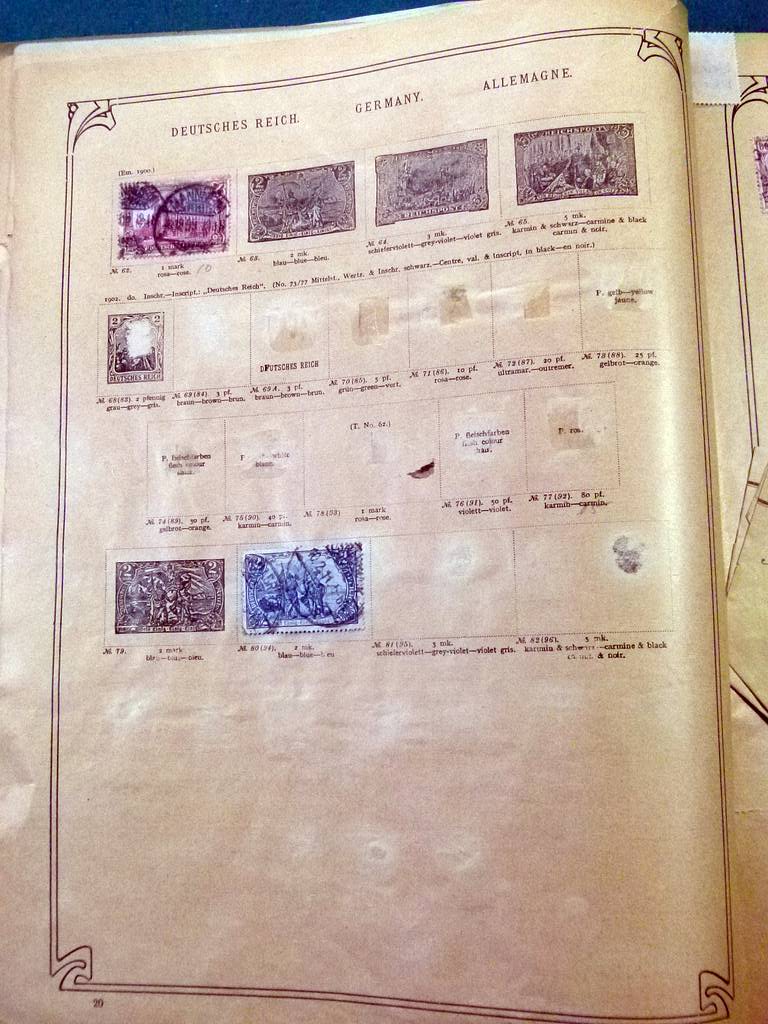 DEUTSCHES REICH. GERMANY. ALLEMAGNE.
(Em. 1900.)
2 2
REICHSPOST
REICHSPOST
№. 62. 1 mark
rosa—rose.
10
№. 63. 2 mk.
blau—blue—bleu.
№. 64. 3 mk.
schieferviolett—grey-violet—violet gris.
№. 65. 5 mk.
karmin & schwarz—carmine & black
carmin & noir.
1902. do. Inschr.—Inscript.: „Deutsches Reich". (No. 73/77 Mittelst., Wertz. & Inschr. schwarz.—Centre, val. & inscript, in black—en noir.)
2 2
DEUTSCHES REICH
DEUTSCHES REICH
P. gelb—yellow
jaune.
№. 68(83). 2 pfennig
grau—grey—gris.
№. 69(84). 3 pf.
braun—brown—brun.
№. 69A. 3 pf.
braun—brown—brun.
№. 70(85). 5 pf.
grün—green—vert.
№. 71(86). 10 pf.
rosa—rose.
№. 72(87). 20 pf.
ultramar.—outremer.
№. 73(88). 25 pf.
gelbrot—orange.
P. fleischfarben
flesh colour
(T. No. 62.)
P. fleischfarben
flesh colour
P.
№. 74(89). 30 pf.
gelbrot—orange.
№. 75(90). 40
karmin—carmin.
№. 78(93) 1 mark
rosa—rose.
№. 76(91). 50 pf.
violett—violet.
№. 77(92). 80 pf.
karmin—carmin.
2 2
№. 79. 2 mark
№. 80(94). 2 mk.
blau—blue—bleu
№. 81(95). 3 mk.
schieferviolett—grey-violet—violet gris.
№. 82(96). 5 mk.
karmin & schwarz—carmine & black
& noir.
20